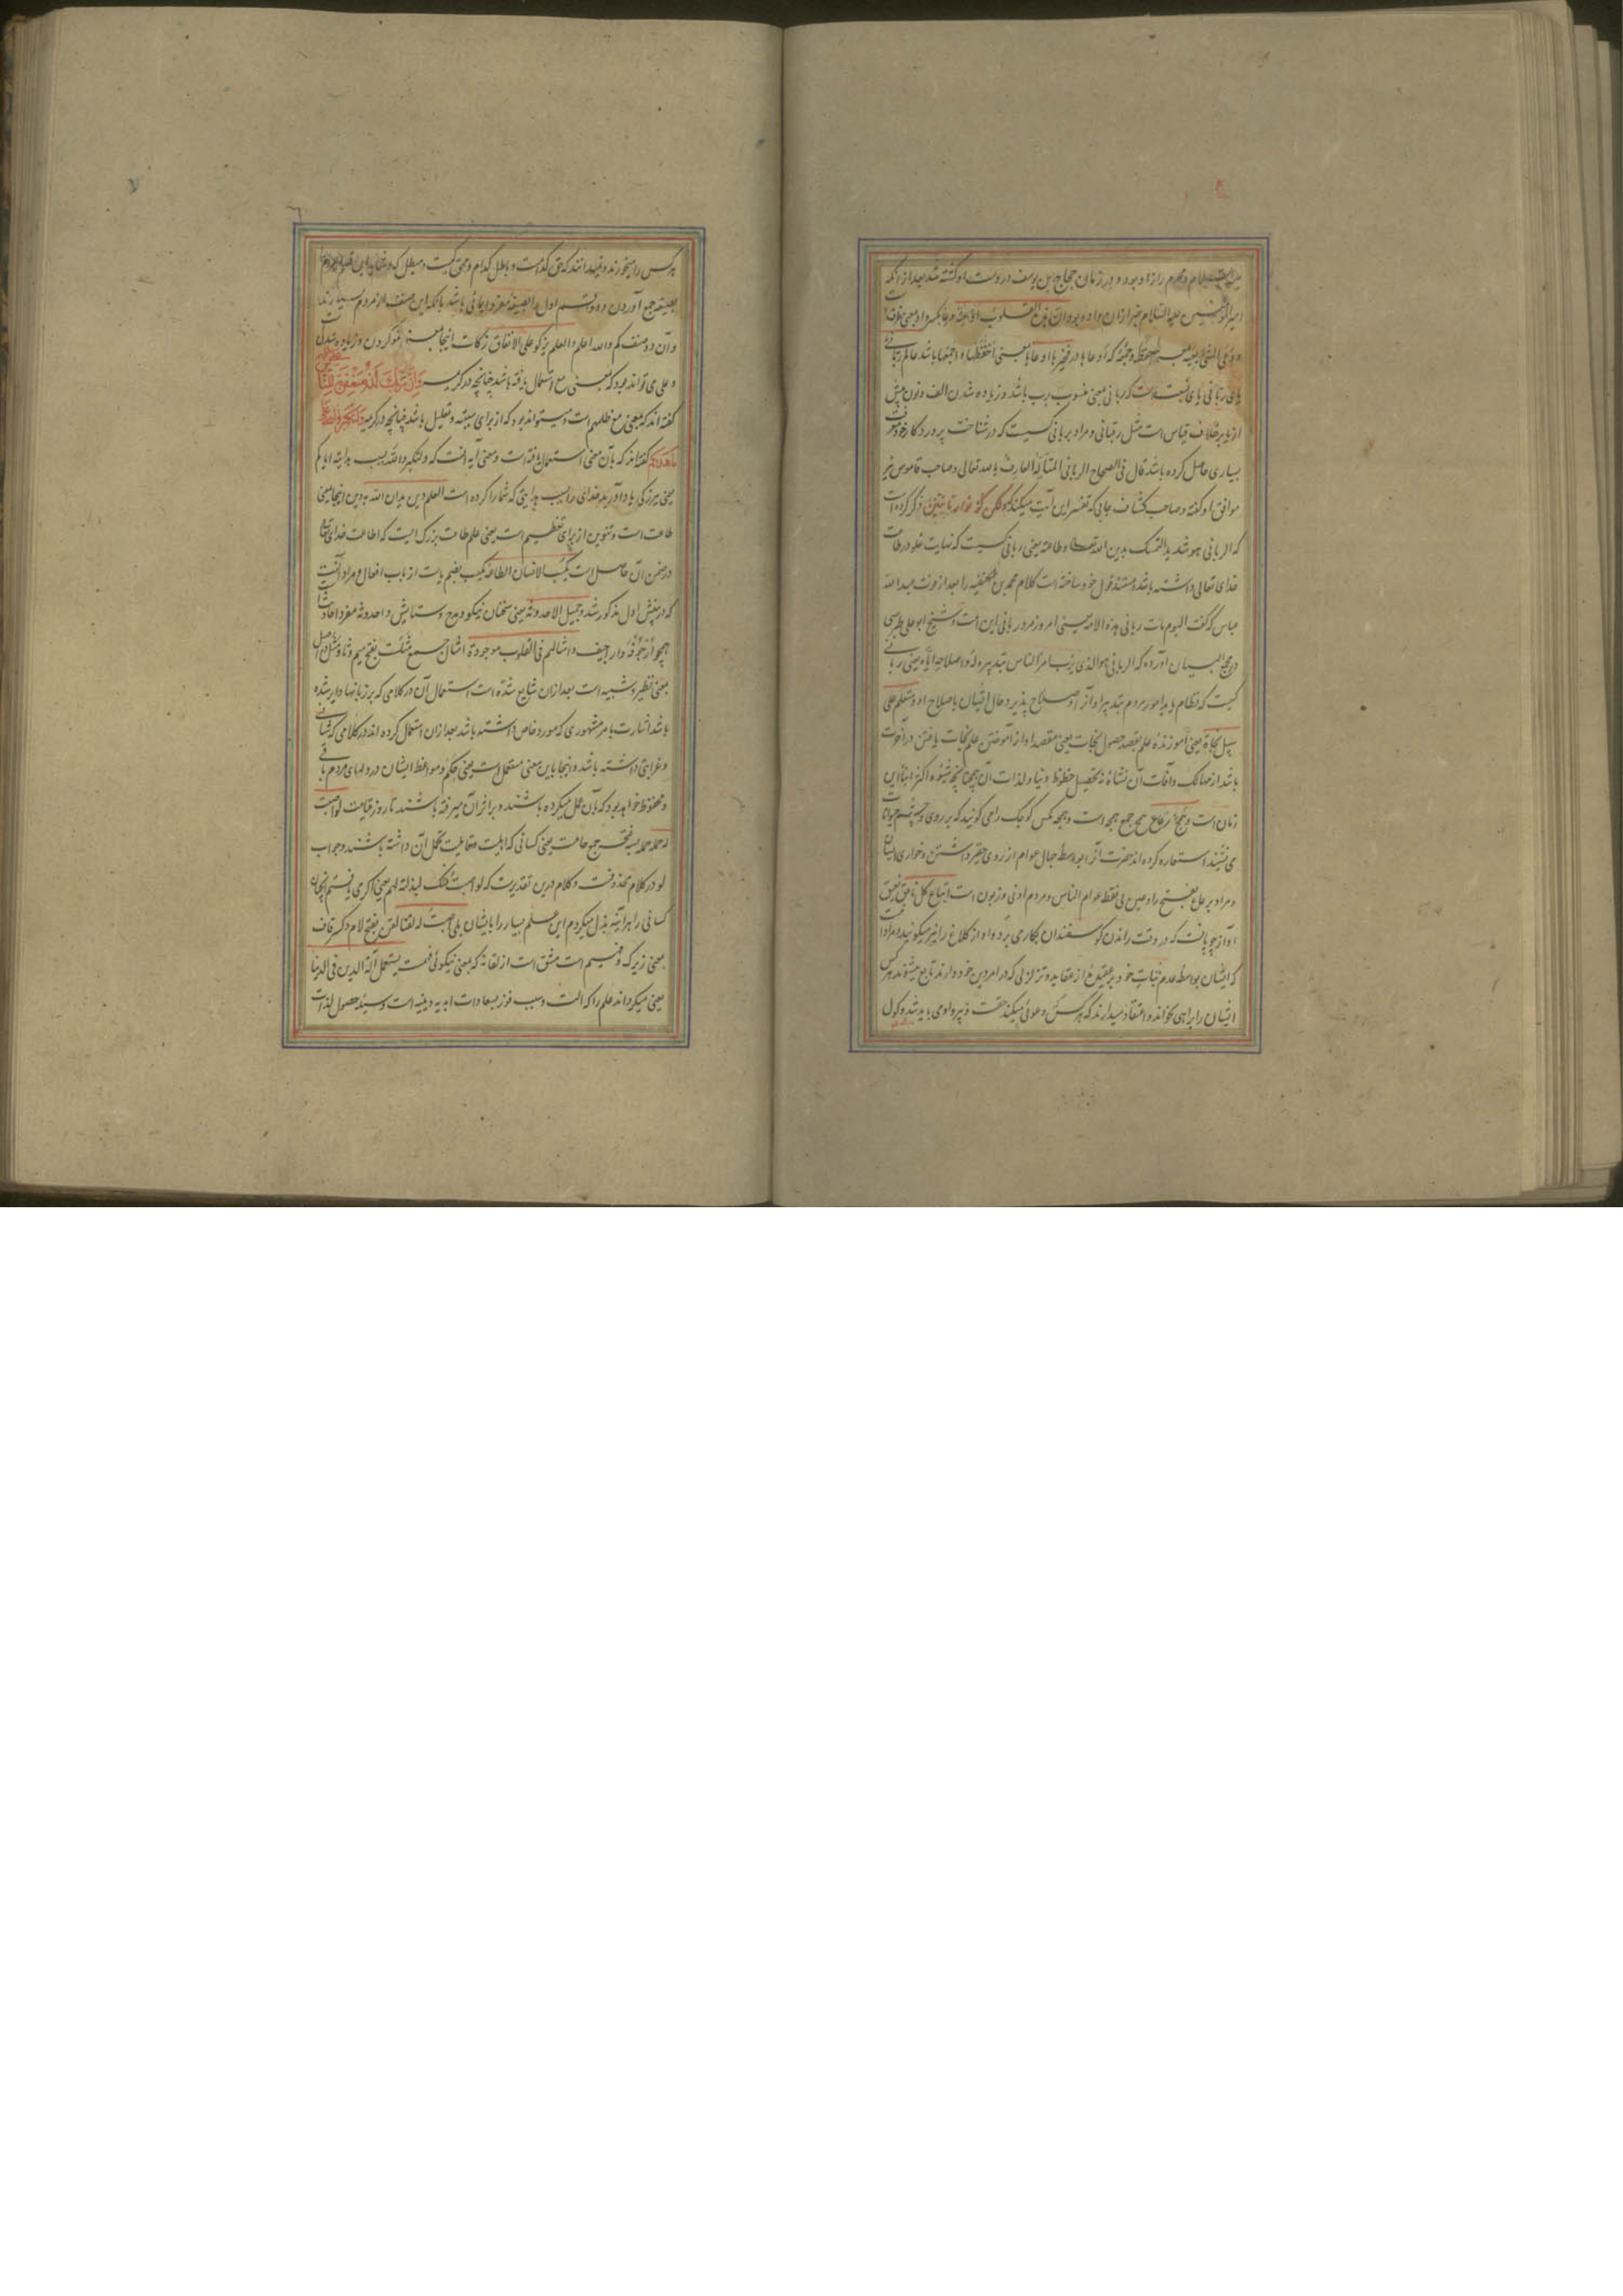 علیه السلام و محرم راز او بود و در زمان حجاج بن یوسف در دست او کشته شد بعد از آنکه
امیر المؤمنین علیه السلام خبر از ان داده بود ان هذه القلوب اوعیة وعا بکسر واو بمعنی ظرفست
یعی الشئ یعیه حفظه و جمعه که اوعاها در خبرها اوعاها بمعنی احفظها و اجمعها باشد عالم ربانی
یای ربانی یای نسبت است که ربانی بمعنی منسوب برب باشد و زیاده شدن الف و نون پیش
از یا بر خلاف قیاس است مثل رقبانی و مراد بربانی کسیست که در شناخت پروردکار خود معرفت
بسیاری حاصل کرده باشد قال فی الصحاح الربانی المتأله العارف بالله تعالی و صاحب قاموس نیز
موافق او کفته و صاحب کشاف جایی که تفسیر این آیت میکند ولکن کونوا ربانیین ذکر کرده است
که الربانی هو شدید التمسک بدین الله تعالی و طاعته یعنی ربانی کسیست که نهایت غلو در طاعت
خدای تعالی داشته باشد و مستند قول خود ساخته است کلام محمد بن حنفیه را بعد از موت عبد الله
عباس که کفت الیوم مات ربانی هذه الامه یعنی امروز مرد ربانی این امت و شیخ ابو علی طبرسی
در مجمع البیان آورده که الربانی هو الذی یرب امر الناس بتدبیره له و اصلاحه ایاه یعنی ربانی
کسیست که نظام یابد امور مردم بتدبیر او و آن اصلاح پذیر و حال ایشان باصلاح او و متعلم علی
سبیل نجاة یعنی آموزنده علم بقصد حصول نجات یعنی مقصد او از آموختن علم نجات یافتن در آخرت
باشد از مهالک و آفات آن نشأة نه تحصیل حظوظ دنیا و لذات آن همچنانچه شیوه اکثر ابنا این
زمان است و همج رعاع همج جمع همجه است و همجه مکس کوچک را می کویند که بر روی و چشم حیوانات
می نشیند استعاره کرده اند حضرت آنرا بواسطه جهال عوام از روی حقیر داشتن و خواری ایشان
و مراد بر رعاع بفتح را و عین بی نقطه عوام الناس و مردم ادنی و زبون است اتباع کل ناعق نعیق
آواز چوپانست که در وقت راندن کوسفندان بکار می برد و آواز کلاغ را نیز میکویند و مراد آنست
که ایشان بواسطه عدم ثبات خود بر عقیده از عقاید و تزلزلی که در امر دین خود دارند تابع میشوند هر کس
ایشان را براهی بخواند و اعتقاد میدارند که هر کس دعوئی میکند حقست و پیرو او می باید شد و کول
هر کس را میخورند و نمیدانند که حق کدامست و باطل کدام و محق کیست و مبطل که
بصیغه جمع آوردن و دو قسم اول را بصیغه مفرد ایمائی باشد بانکه این صنف از مردم بسیارند
و آن دو صنف کم و الله اعلم و العلم یزکو علی الانفاق زکات اینجا بمعنی نمو کردن و زیاده شدنست
و علی می تواند بود که بمعنی مع استعمال یافته باشد چنانچه در کریمه وان ربک لذو مغفرة للناس علی ظلمهم
کفته اند که بمعنی مع ظلمهم است و میتواند بود که از برای سببیه و تعلیل باشد چنانچه در کریمه ولتکبروا الله علی
ما هدیکم کفته اند که بآن معنی استعمال یافته است و معنی آیه آنست که و لتکبروا الله بسبب هدایته ایاکم
یعنی ببزرکی یاد آورید خدای را بسبب هدایتی که شما را کرده است العلم دین یدان الله به دین اینجا بمعنی
طاعت است و تنوین از برای تعظیم است یعنی علم طاعت بزرک است که اطاعت خدای تعالی
در ضمن آن حاصل است یکسب الانسان الطاعه یکسب بضم یا است از باب افعال و مراد آنست
که در پیش اول مذکور شد و جمیل الاحدوثه یعنی سخنان نیکو و مدح و ستایش و احدوثه مفرد احادیث است
همچو ارجوفه و اراجیف و امثالهم فی القلوب موجودة امثال جمع مثلست بفتح میم و ثا و مثل در اصل
بمعنی نظیر و شبیه است بعد از ان شایع شده است استعمال آن در کلامی که بر زبانها دایر شده
باشد اشارت بامر مشهوری که مورد خاص داشته باشد بعد از ان استعمال کرده اند در کلامی که شانی
و غرابتی داشته باشد و اینجا باین معنی مستعمل است یعنی حکم و مواعظ ایشان در دلهای مردم باقی
و محفوظ خواهد بود که بآن عمل میکرده باشند و بر اثر آن میرفته باشند تا روز قیامت لو اصبت
له حملة حمله بسه فتحه جمع حاملست یعنی کسانی که اهلیت و قابلیت تحمل آن داشته باشند و جواب
لو در کلام محذوفست و کلام درین تقدیرست که لو اصبت لبذلته لهم یعنی اکر می یافتم چنان
کسانی را هر آینه بذل میکردم این علم بسیار را بایشان بلی اصبت له لقنا لقن بفتح لام و کسر قاف
بمعنی زیرک و فهیم است مشتق است از لقانه که بمعنی نیکوئی فهمست یستعمل آلة الدین فی الدنیا
یعنی میکرداند علم را که آلت و سبب فوز بسعادات ابدیه دینیه است وسیله حصول لذات